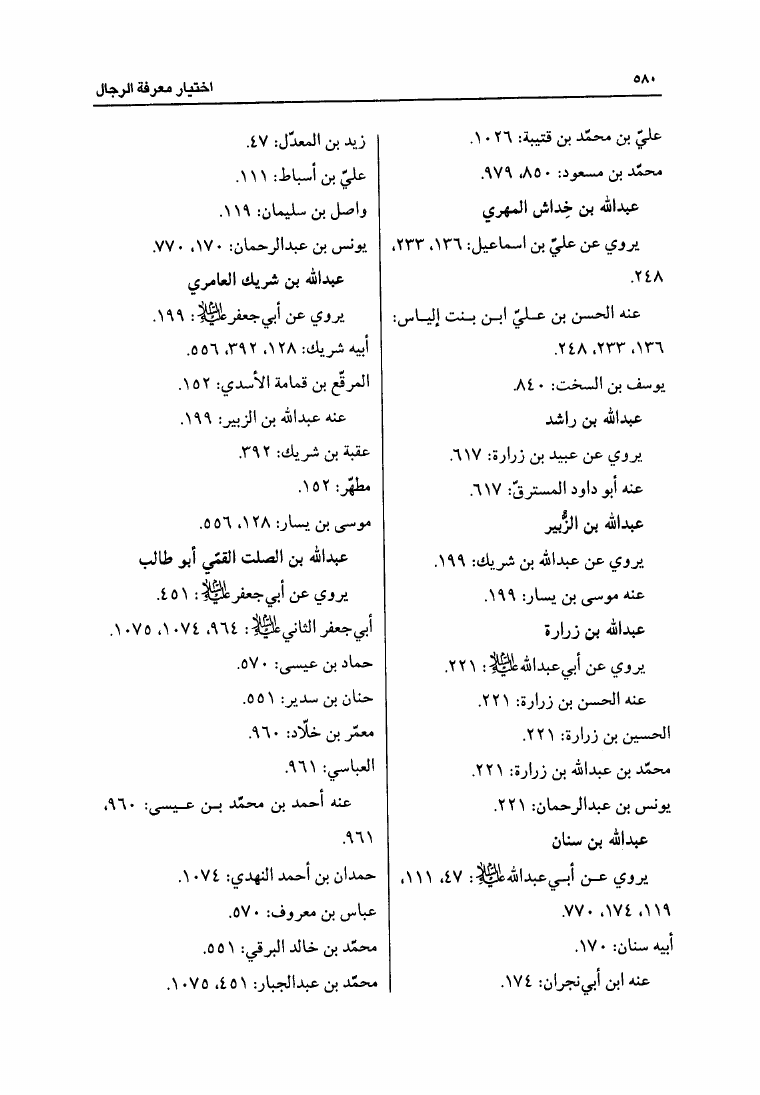 ٥٨٠
اختيار معرفة الرجال
عليّ بن محمّد بن قتيبة: ١٠٢٦.
محمّد بن مسعود: ٨٥٠، ٩٧٩.
عبدالله بن خِداش المهري
يروي عن عليّ بن اسماعيل: ١٣٦، ٢٣٣،
٢٤٨.
عنه الحسن بن عـليّ ابـن بـنت إليـاس:
١٣٦، ٢٣٣، ٢٤٨.
يوسف بن السخت: ٨٤٠.
عبدالله بن راشد
يروي عن عبيد بن زرارة: ٦١٧.
عنه أبو داود المسترقّ: ٦١٧.
عبدالله بن الزُّبير
يروي عن عبدالله بن شريك: ١٩٩.
عنه موسى بن يسار: ١٩٩.
عبدالله بن زرارة
يروي عن أبي‌عبدالله عليه‌السلام: ٢٢١.
عنه الحسن بن زرارة: ٢٢١.
الحسين بن زرارة: ٢٢١.
محمّد بن عبدالله بن زرارة: ٢٢١.
يونس بن عبدالرحمان: ٢٢١.
عبدالله بن سنان
يروي عـن أبـي‌عبدالله عليه‌السلام: ٤٧، ١١١،
١١٩، ١٧٤، ٧٧٠.
أبيه سنان: ١٧٠.
عنه ابن أبي‌نجران: ١٧٤.
زيد بن المعدّل: ٤٧.
عليّ بن أسباط: ١١١.
واصل بن سليمان: ١١٩.
يونس بن عبدالرحمان: ١٧٠، ٧٧٠.
عبدالله بن شريك العامري
يروي عن أبي‌جعفر عليه‌السلام: ١٩٩.
أبيه شريك: ١٢٨، ٣٩٢، ٥٥٦.
المرقّع بن قمامة الأسدي: ١٥٢.
عنه عبدالله بن الزبير: ١٩٩.
عقبة بن شريك: ٣٩٢.
مطهّر: ١٥٢.
موسى بن يسار: ١٢٨، ٥٥٦.
عبدالله بن الصلت القمّي أبو طالب
يروي عن أبي‌جعفر عليه‌السلام: ٤٥١.
أبي‌جعفر الثاني عليه‌السلام: ٩٦٤، ١٠٧٤، ١٠٧٥.
حماد بن عيسى: ٥٧٠.
حنان بن سدير: ٥٥١.
معمّر بن خلّاد: ٩٦٠.
العباسي: ٩٦١.
عنه أحمد بن محمّد بـن عـيسى: ٩٦٠،
٩٦١.
حمدان بن أحمد النهدي: ١٠٧٤.
عباس بن معروف: ٥٧٠.
محمّد بن خالد البرقي: ٥٥١.
محمّد بن عبدالجبار: ٤٥١، ١٠٧٥.